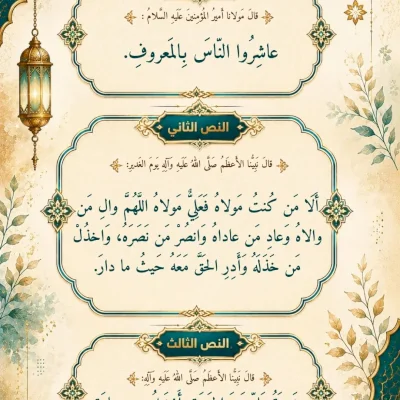 قالَ مَولانا أميرُ المُؤمِنينَ عَلَيهِ السَّلامُ :
عاشِرُوا النّاسَ بِالمَعروفِ.
النص الثاني
قالَ نَبِيُّنا الأعظَمُ صَلَّى اللهُ عَلَيهِ وَآلِهِ يَومَ الغَديرِ:
أَلَا مَن كُنتُ مَولاهُ فَعَلِيٌّ مَولاهُ اللَّهُمَّ والِ مَن
والاهُ وَعادِ مَن عاداهُ وَانصُرْ مَن نَصَرَهُ، وَاخذُلْ
مَن خَذَلَهُ وَأَدِرِ الحَقَّ مَعَهُ حَيثُ ما دارَ.
النص الثالث
قالَ نَبِيُّنا الأعظَمُ صَلَّى اللهُ عَلَيهِ وَآلِهِ: